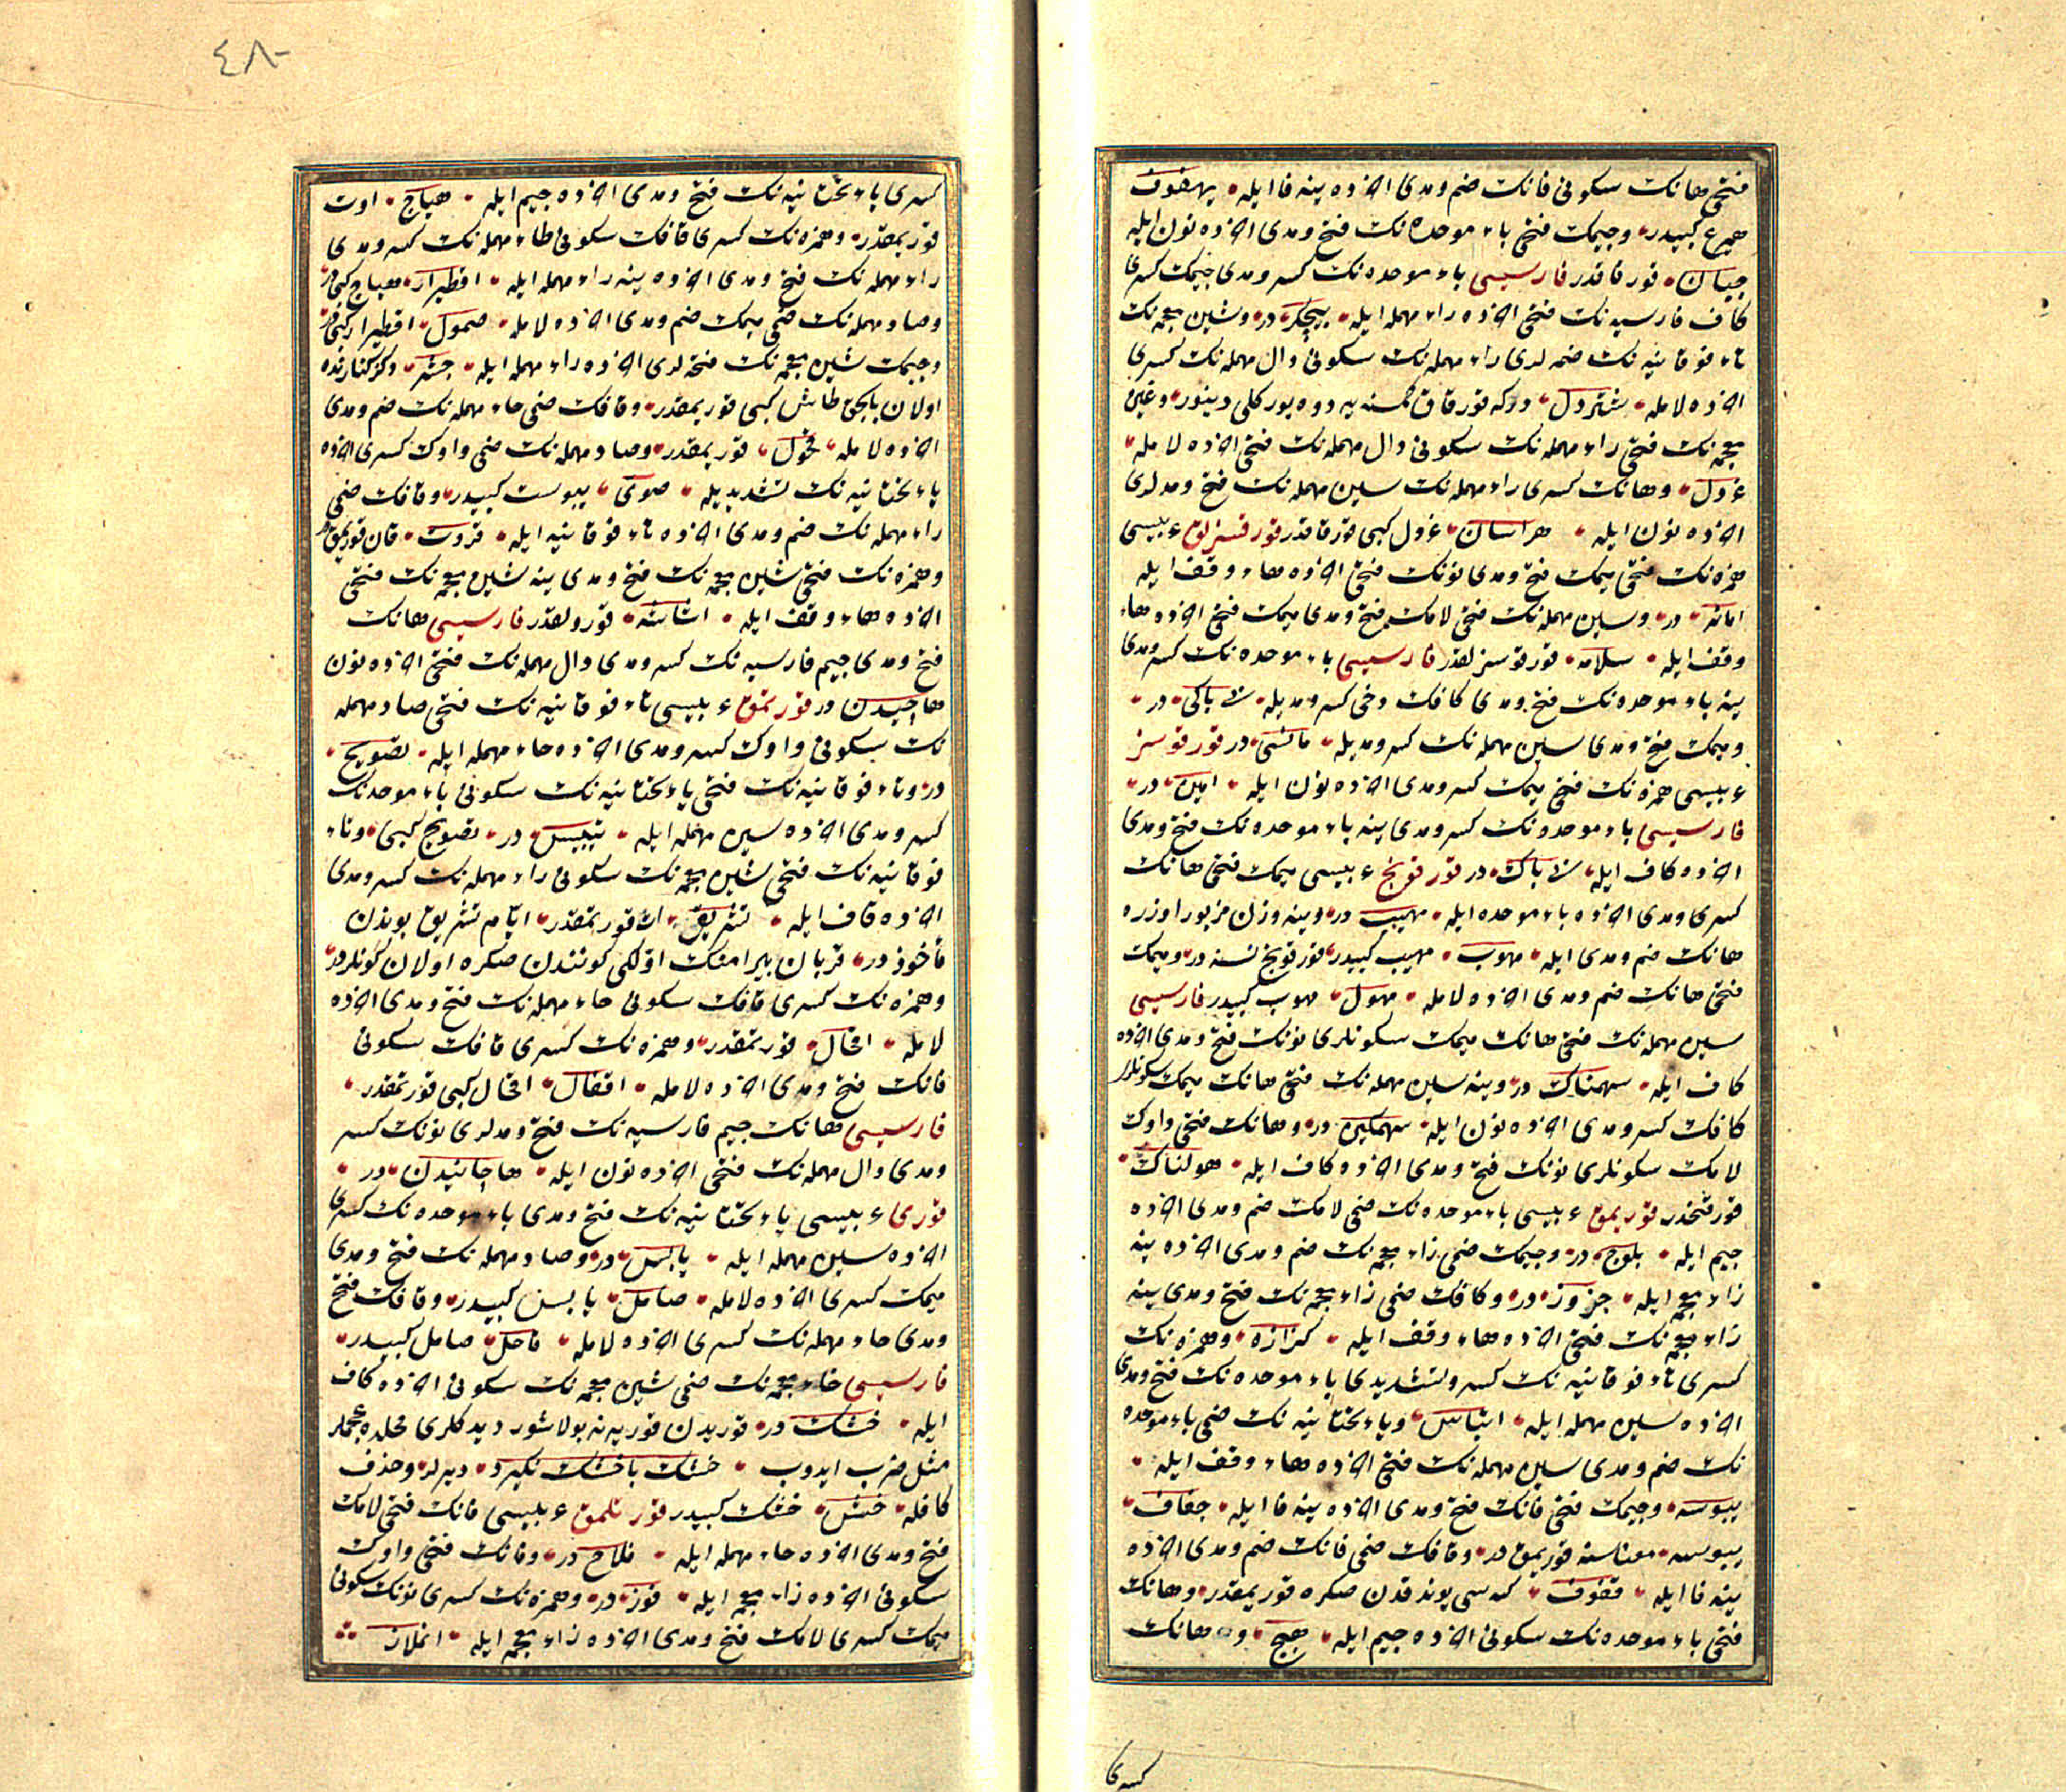 فتحی هانك سكونی فانك ضم ومدی اخرده ینه فا ایله یهفوف
هیرع كبیدر وجیمك فتحی باء موحده نك فتح ومدی اخرده نون ایله
جبان قورقاقدر فارسیسی باء موحده نك كسر ومدی جیمك كسری
كاف فارسیه نك فتحی اخرده راء مهمله ایله بیجگر در وشین معجمه نك
تاء فوقانیه نك ضمه لری راء مهمله نك سكونی دال مهمله نك كسری
اخرده لامله شتردل دركه قورقاق كمسنه یه دوه یوركلی دینور وغین
معجمه نك فتحی راء مهمله نك سكونی دال مهمله نك فتحی اخرده لامله
غردل وهانك كسری راء مهمله نك سین مهمله نك فتح ومدلری
اخرده نون ایله هراسان غردل كبی قورقاقدر قورقسزلق عربیسی
همزه نك فتحی میمك فتح ومدی نونك فتحی اخرده هاء وقف ایله
امانه در وسین مهمله نك فتحی لامك فتح ومدی میمك فتحی اخرده هاء
وقف ایله سلامه قورقوسزلقدر فارسیسی باء موحده نك كسر ومدی
ینه باء موحده نك فتح ومدی كافك دخی كسر ومدیله بی باكی در
ومیمك فتح ومدی سین مهمله نك كسر ومدیله در قورقوسز
عربیسی همزه نك فتحی میمك كسر ومدی اخرده نون ایله امین در
فارسیسی باء موحده نك كسر ومدی ینه باء موحده نك فتح ومدی
اخرده كاف ایله بی باك در قورقونج عربیسی میمك فتحی هانك
كسری ومدی اخرده باء موحده ایله مهیب در وینه وزن مزبور اوزره
هانك ضم ومدی ایله مهوب مهیب كبیدر قورقونج نسنه در ومیمك
فتحی هانك ضم ومدی اخرده لامله مهول مهوب كبیدر فارسیسی
سین مهمله نك فتحی هانك میمك سكونلری نونك فتح ومدی اخرده
كاف ایله سهمناك در وینه سین مهمله نك فتحی هانك میمك سكونلری
كافك كسر ومدی اخرده نون ایله سهمگین در وهانك فتحی واوك
لامك سكونلری نونك فتح ومدی اخرده كاف ایله هولناك
قورقنجدر قوریمق عربیسی باء موحده نك ضمی لامك ضم ومدی اخرده
جیم ایله بلوج در وجیمك ضمی زاء معجمه نك ضم ومدی اخرده ینه
زاء معجمه ایله جزوز در وكافك ضمی زاء معجمه نك فتح ومدی ینه
زاء معجمه نك فتحی اخرده هاء وقف ایله كزازه وهمزه نك
كسری تاء فوقانیه نك كسر وتشدیدی باء موحده نك فتح ومدی
اخرده سین مهمله ایله اتباس ویاء تحتانیه نك ضمی باء موحده
نك ضم ومدی سین مهمله نك فتحی اخرده هاء وقف ایله
یبوسه وجیمك فتحی فانك فتح ومدی اخرده ینه فا ایله جفاف
یبوسه معناسنه قوریمق در وقافك ضمی فانك ضم ومدی اخرده
ینه فا ایله قفوف كه سی یوندقدن صكره قوریمقدر وهانك
فتحی باء موحده نك سكونی اخرده جیم ایله هبج وهانك
كسری
٤٨٠
كسری یاء تحتانیه نك فتح ومدی اخرده جیم ایله هیاج اوت
قوریمقدر وهمزه نك كسری قافك سكونی طاء مهمله نك كسر ومدی
راء مهمله نك فتح ومدی اخرده ینه راء مهمله ایله اقطیرار هیاج كبی در
وصاد مهمله نك ضمی میمك ضم ومدی اخرده لامله صمول اقطیرار كبی در
وجیمك شین معجمه نك فتحه لری اخرده راء مهمله ایله جشر دكز كنارنده
اولان بالجق طاش كبی قوریمقدر وقافك ضمی حاء مهمله نك ضم ومدی
اخرده لامله قحول قوریمقدر وصاد مهمله نك ضمی واوك كسری اخرده
یاء تحتانیه نك تشدیدیله صوی یبوست كبیدر وقافك ضمی
راء مهمله نك ضم ومدی اخرده تاء فوقانیه ایله قروت قان قوریمق در
وهمزه نك فتحی شین معجمه نك فتح ومدی ینه شین معجمه نك فتحی
اخرده هاء وقف ایله اشاشه قورولقدر فارسیسی هانك
فتح ومدی جیم فارسیه نك كسر ومدی دال مهمله نك فتحی اخرده نون
هاچیدن در قورتمق عربیسی تاء فوقانیه نك فتحی صاد مهمله
نك سكونی واوك كسر ومدی اخرده حاء مهمله ایله تصویح
در وتاء فوقانیه نك فتحی یاء تحتانیه نك سكونی باء موحده نك
كسر ومدی اخرده سین مهمله ایله تیبیس در تصویح كبی وتاء
فوقانیه نك فتحی شین معجمه نك سكونی راء مهمله نك كسر ومدی
اخرده قاف ایله تشریق ات قورتمقدر ایام تشریق بوندن
مأخوذدر قربان بیرامنك اولكی كونندن صكره اولان كونلردر
وهمزه نك كسری قافك سكونی حاء مهمله نك فتح ومدی اخرده
لامله اقحال قورتمقدر وهمزه نك كسری قافك سكونی
فانك فتح ومدی اخرده لامله اقفال اقحال كبی قورتمقدر
فارسیسی هانك جیم فارسیه نك فتح ومدلری نونك كسر
ومدی دال مهمله نك فتحی اخرده نون ایله هاچانیدن در
قوری عربیسی یاء تحتانیه نك فتح ومدی باء موحده نك كسری
اخرده سین مهمله ایله یابس در وصاد مهمله نك فتح ومدی
میمك كسری اخرده لامله صامل یابس كبیدر وقافك فتح
ومدی حاء مهمله نك كسری اخرده لامله قاحل صامل كبیدر
فارسیسی خاء معجمه نك ضمی شین معجمه نك سكونی اخرده كاف
ایله خشك در قوریدن قورییه نه بولاشور دیدكلری محلده عجملر
مثل ضرب ایدوب خشك با خشك نگیرد دیرلر وحذف
كافله خش خشك كبیدر قورتلمق عربیسی فانك فتحی لامك
فتح ومدی اخرده حاء مهمله ایله فلاح در وفانك فتحی واوك
سكونی اخرده زاء معجمه ایله فوز در وهمزه نك كسری نونك سكونی
میمك كسری لامك فتح ومدی اخرده زاء معجمه ایله انملاز